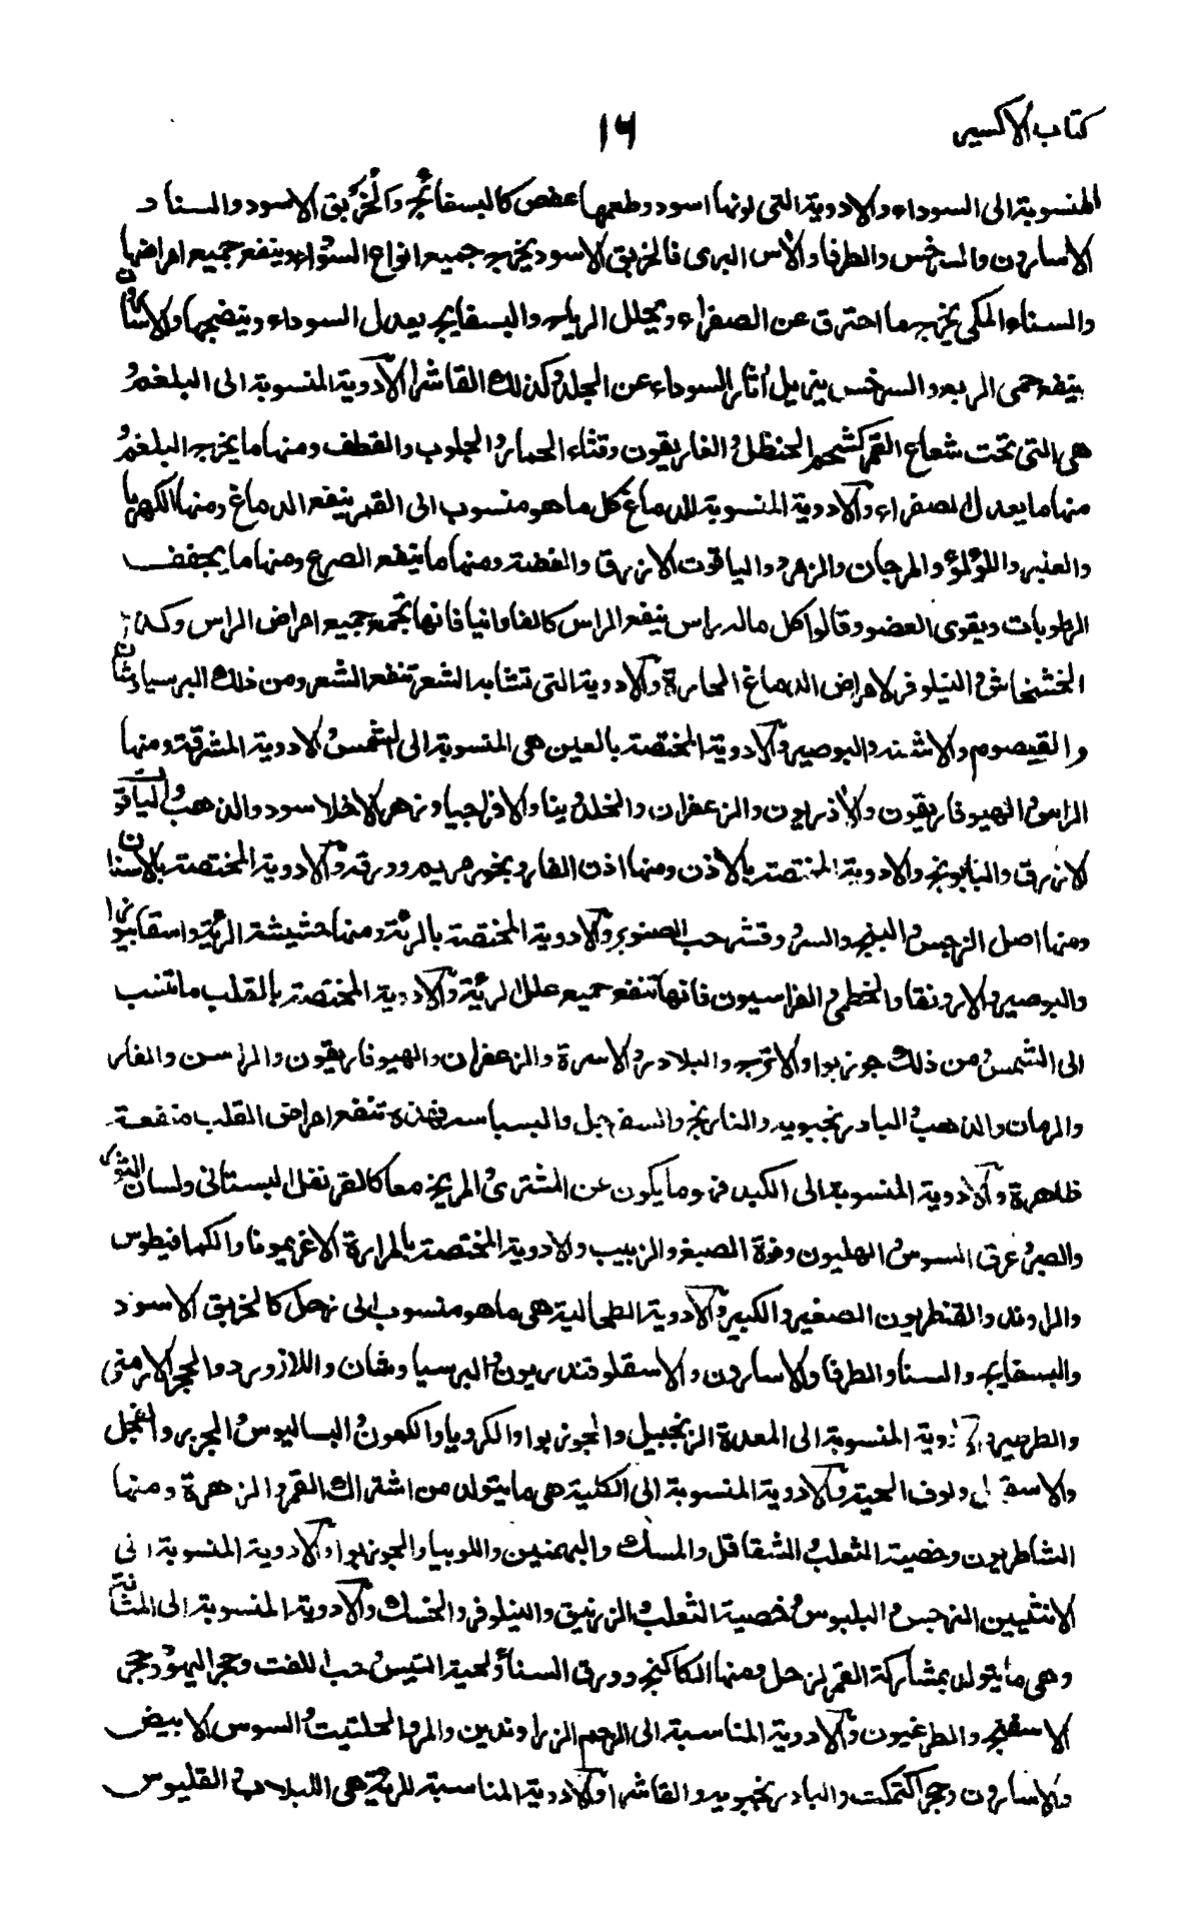 كتاب الاكسير
١٦
المنسوبة الى السوداء والادوية التى لونها اسود وطعمها عفص كالبسفائج والخربق الاسود والسناء و
الاسارون والسرخس والطرفا والآس البرى فالخربق الاسود يخرج جميع انواع السوداء وينفع جميع امراضها
والسناء المكى يخرج ما احترق عن الصفراء ويحلل الرياح والبسفايج يعدل السوداء وينضجها والاسارون
ينفع حمى الربع والسرخس يزيل آثار السوداء عن الجلد وكذلك القاشرا والادوية المنسوبة الى البلغم و
هى التى تحت شعاع القمر كشحم الحنظل والغاريقون وقثاء الحمار والجلوب والقطف ومنها ما يخرج البلغم و
منها ما يعدل الصفراء والادوية المنسوبة للدماغ كل ما هو منسوب الى القمر ينفع الدماغ ومنها الكهربا
والعنبر واللؤلؤ والمرجان والزمرد والياقوت الازرق والفضة ومنها ما ينفع الصرع ومنها ما يجفف
الرطوبات ويقوى العضو وقالوا كل ماله راس ينفع الراس كالفاوانيا فانها تجمع جميع امراض الراس وكذا
الخشخاش والنيلوفر لامراض الدماغ الحارة والادوية التى تشابه الشعر تنفع الشعر ومن ذلك البرسياوشان
والقيصوم والاشنه والبوصير والادوية المختصة بالعين هى المنسوبة الى الشمس والادوية المشرقة ومنها
الراسن والهيوفاريقون والاذريون والزعفران والخلدينا والافراجيا وزهر الاخلاسود والذهب والياقوت
الازرق والبابونج والادوية المختصة بالاذن ومنها اذن الفار وبخور مريم وورقه والادوية المختصة بالاسنان
ومنها اصل النرجس والبنج والسرو وقشر حب الصنوبر والادوية المختصة بالرئة ومنها حشيشة الرئة واسقابيوزا
والبوصير والارونقا والخطمى والفراسيون فانها تنفع جميع علل الرئية والادوية المختصة بالقلب ما تنسب
الى الشمس ومن ذلك جوزبوا والاترج والبلادر والاسرة والزعفران والهيوفاريقون والراسن والغار
والرمان والذهب والبادرنجبويه والنارنج والسفرجل والبسباسه فهذه تنفع امراض القلب منفعة
ظاهرة والادوية المنسوبة الى الكبد فهو ما يكون عن المشترى والمريخ معا كالقرنفل البستانى ولسان الثور
والصبر وعرق السوس والهليون وفوة الصبغ والزبيب والادوية المختصة بالمرارة الاغريمونا والكمافيطوس
والراوند والقنطريون الصغير والكبير والادوية الطحالية هى ما هو منسوب الى زحل كالخربق الاسود
والبسفايج والسنا والطرفا والاسارون والاسقلوقندريون والبرسياوشان واللازورد والحجر الارمنى
والطرحير والادوية المنسوبة الى المعدة الزنجبيل والجوزبوا والكرويا والكمون والبساليوس والجرير والفجل
والاسقيل ولوف الحية والادوية المنسوبة الى الكلية هى ما يتولد من اشتراك القمر والزهرة ومنها
الشاطريون وخصية الثعلب والشقاقل والمسك والبهمنين واللوبيا والجوزبوا والادوية المنسوبة الى
الانثيين النرجس والبلبوس وخصية الثعلب والزرنيق والنيلوفر والخسك والادوية المنسوبة الى المثانة
وهى ما يتولد بمشاركة القمر لزحل ومنها الكاكنج وورق السنا ولحية التيس وحب اللفت وحجر اليهود وحجر
الاسفنج والطرغيون والادوية المناسبة الى الرحم الزراوندين والمر والحلتيت والسوس الابيض
والاسارون وحجر اكتمكت والبادرنجبويه والقاشرا والادوية المناسبة للرئة هى اللبلاب والقليوس